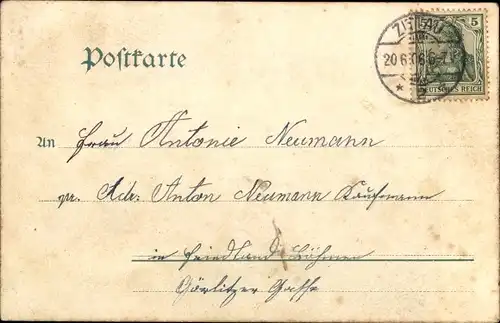 Postkarte
ZITTAU
20 6 06 6-7
5
DEUTSCHES REICH
An Frau Antonie Neumann
pr. Adr. Anton Neumann Kaufmann
in Friedland Böhmen
Görlitzer Gasse